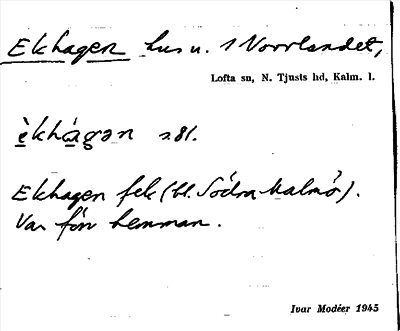 Ekhagen hus u. 1 Norrlandet,
Lofta sn, N. Tjusts hd, Kalm. l.
èkhàgən s. 81.
Ekhagen fek (bl. Södra Malmö).
Var förr hemman.
Ivar Modéer 1945